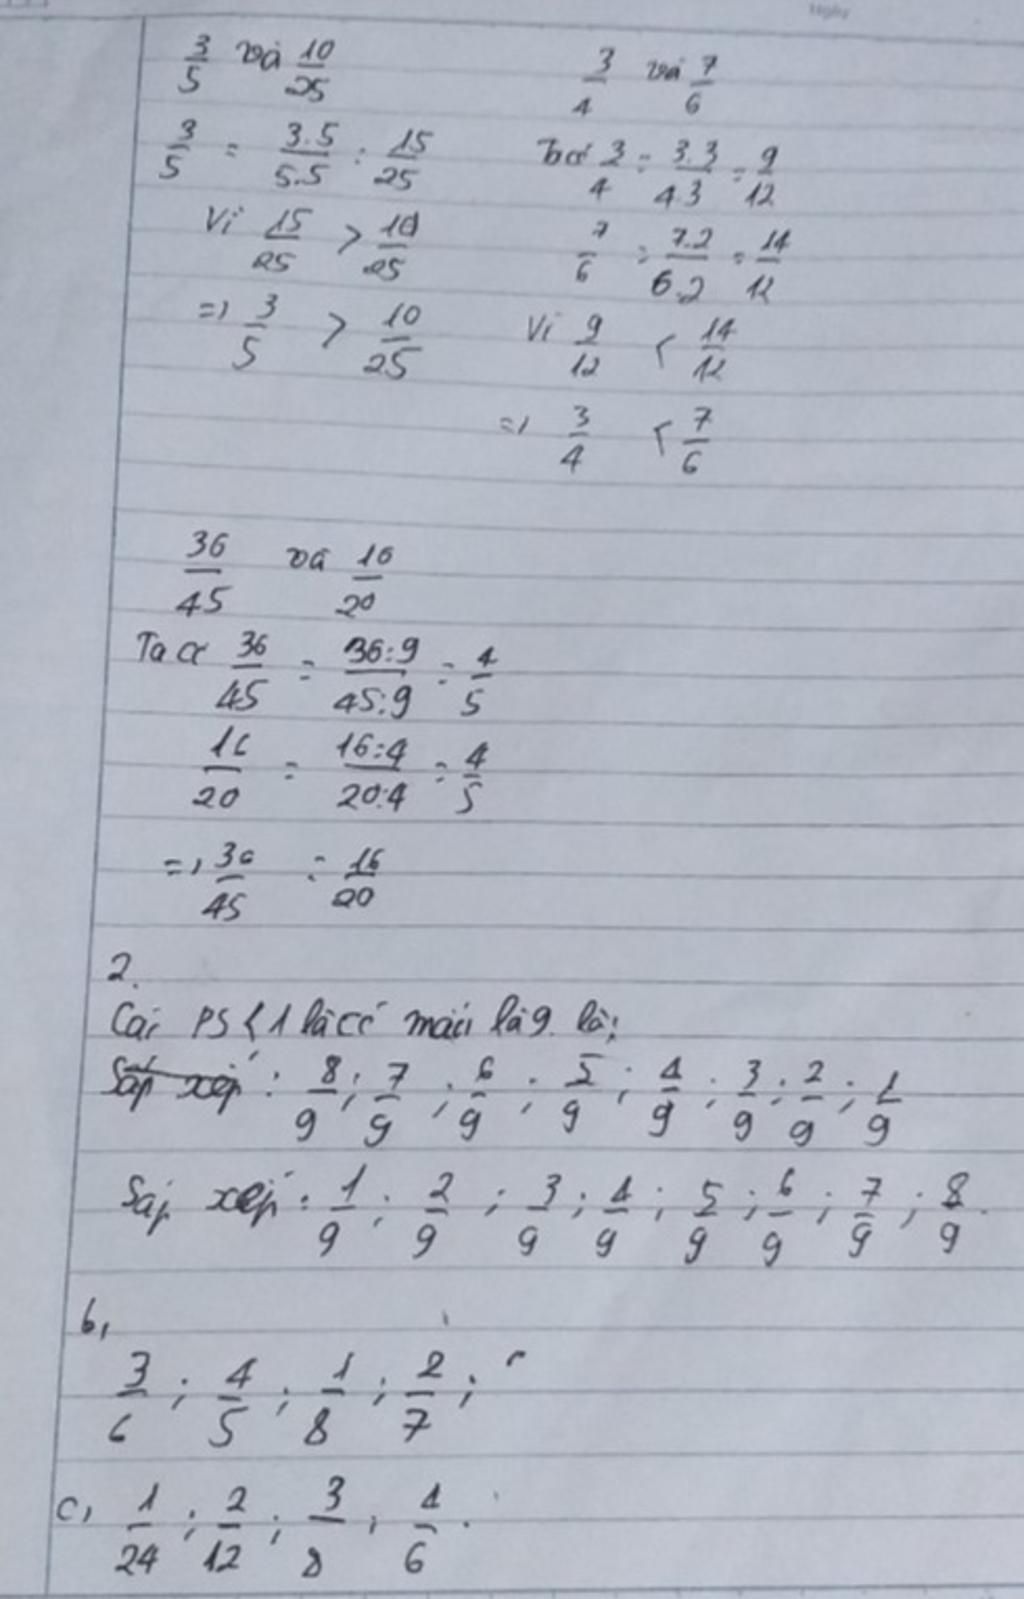 3/5 và 10/25
3/5 = 3.5/5.5 = 15/25
Vì 15/25 > 10/25
=> 3/5 > 10/25
3/4 và 7/6
Ta có 3/4 = 3.3/4.3 = 9/12
7/6 = 7.2/6.2 = 14/12
Vì 9/12 < 14/12
=> 3/4 < 7/6
36/45 và 16/20
Ta có 36/45 = 36:9/45:9 = 4/5
16/20 = 16:4/20:4 = 4/5
=> 36/45 = 16/20
2.
Các PS < 1 là có mẫu là 9 là:
Sắp xếp : 8/9 ; 7/9 ; 6/9 ; 5/9 ; 4/9 ; 3/9 ; 2/9 ; 1/9
Sắp xếp : 1/9 ; 2/9 ; 3/9 ; 4/9 ; 5/9 ; 6/9 ; 7/9 ; 8/9.
b,
3/6 ; 4/5 ; 1/8 ; 2/7 ;
c, 1/24 ; 2/12 ; 3/8 ; 4/6.